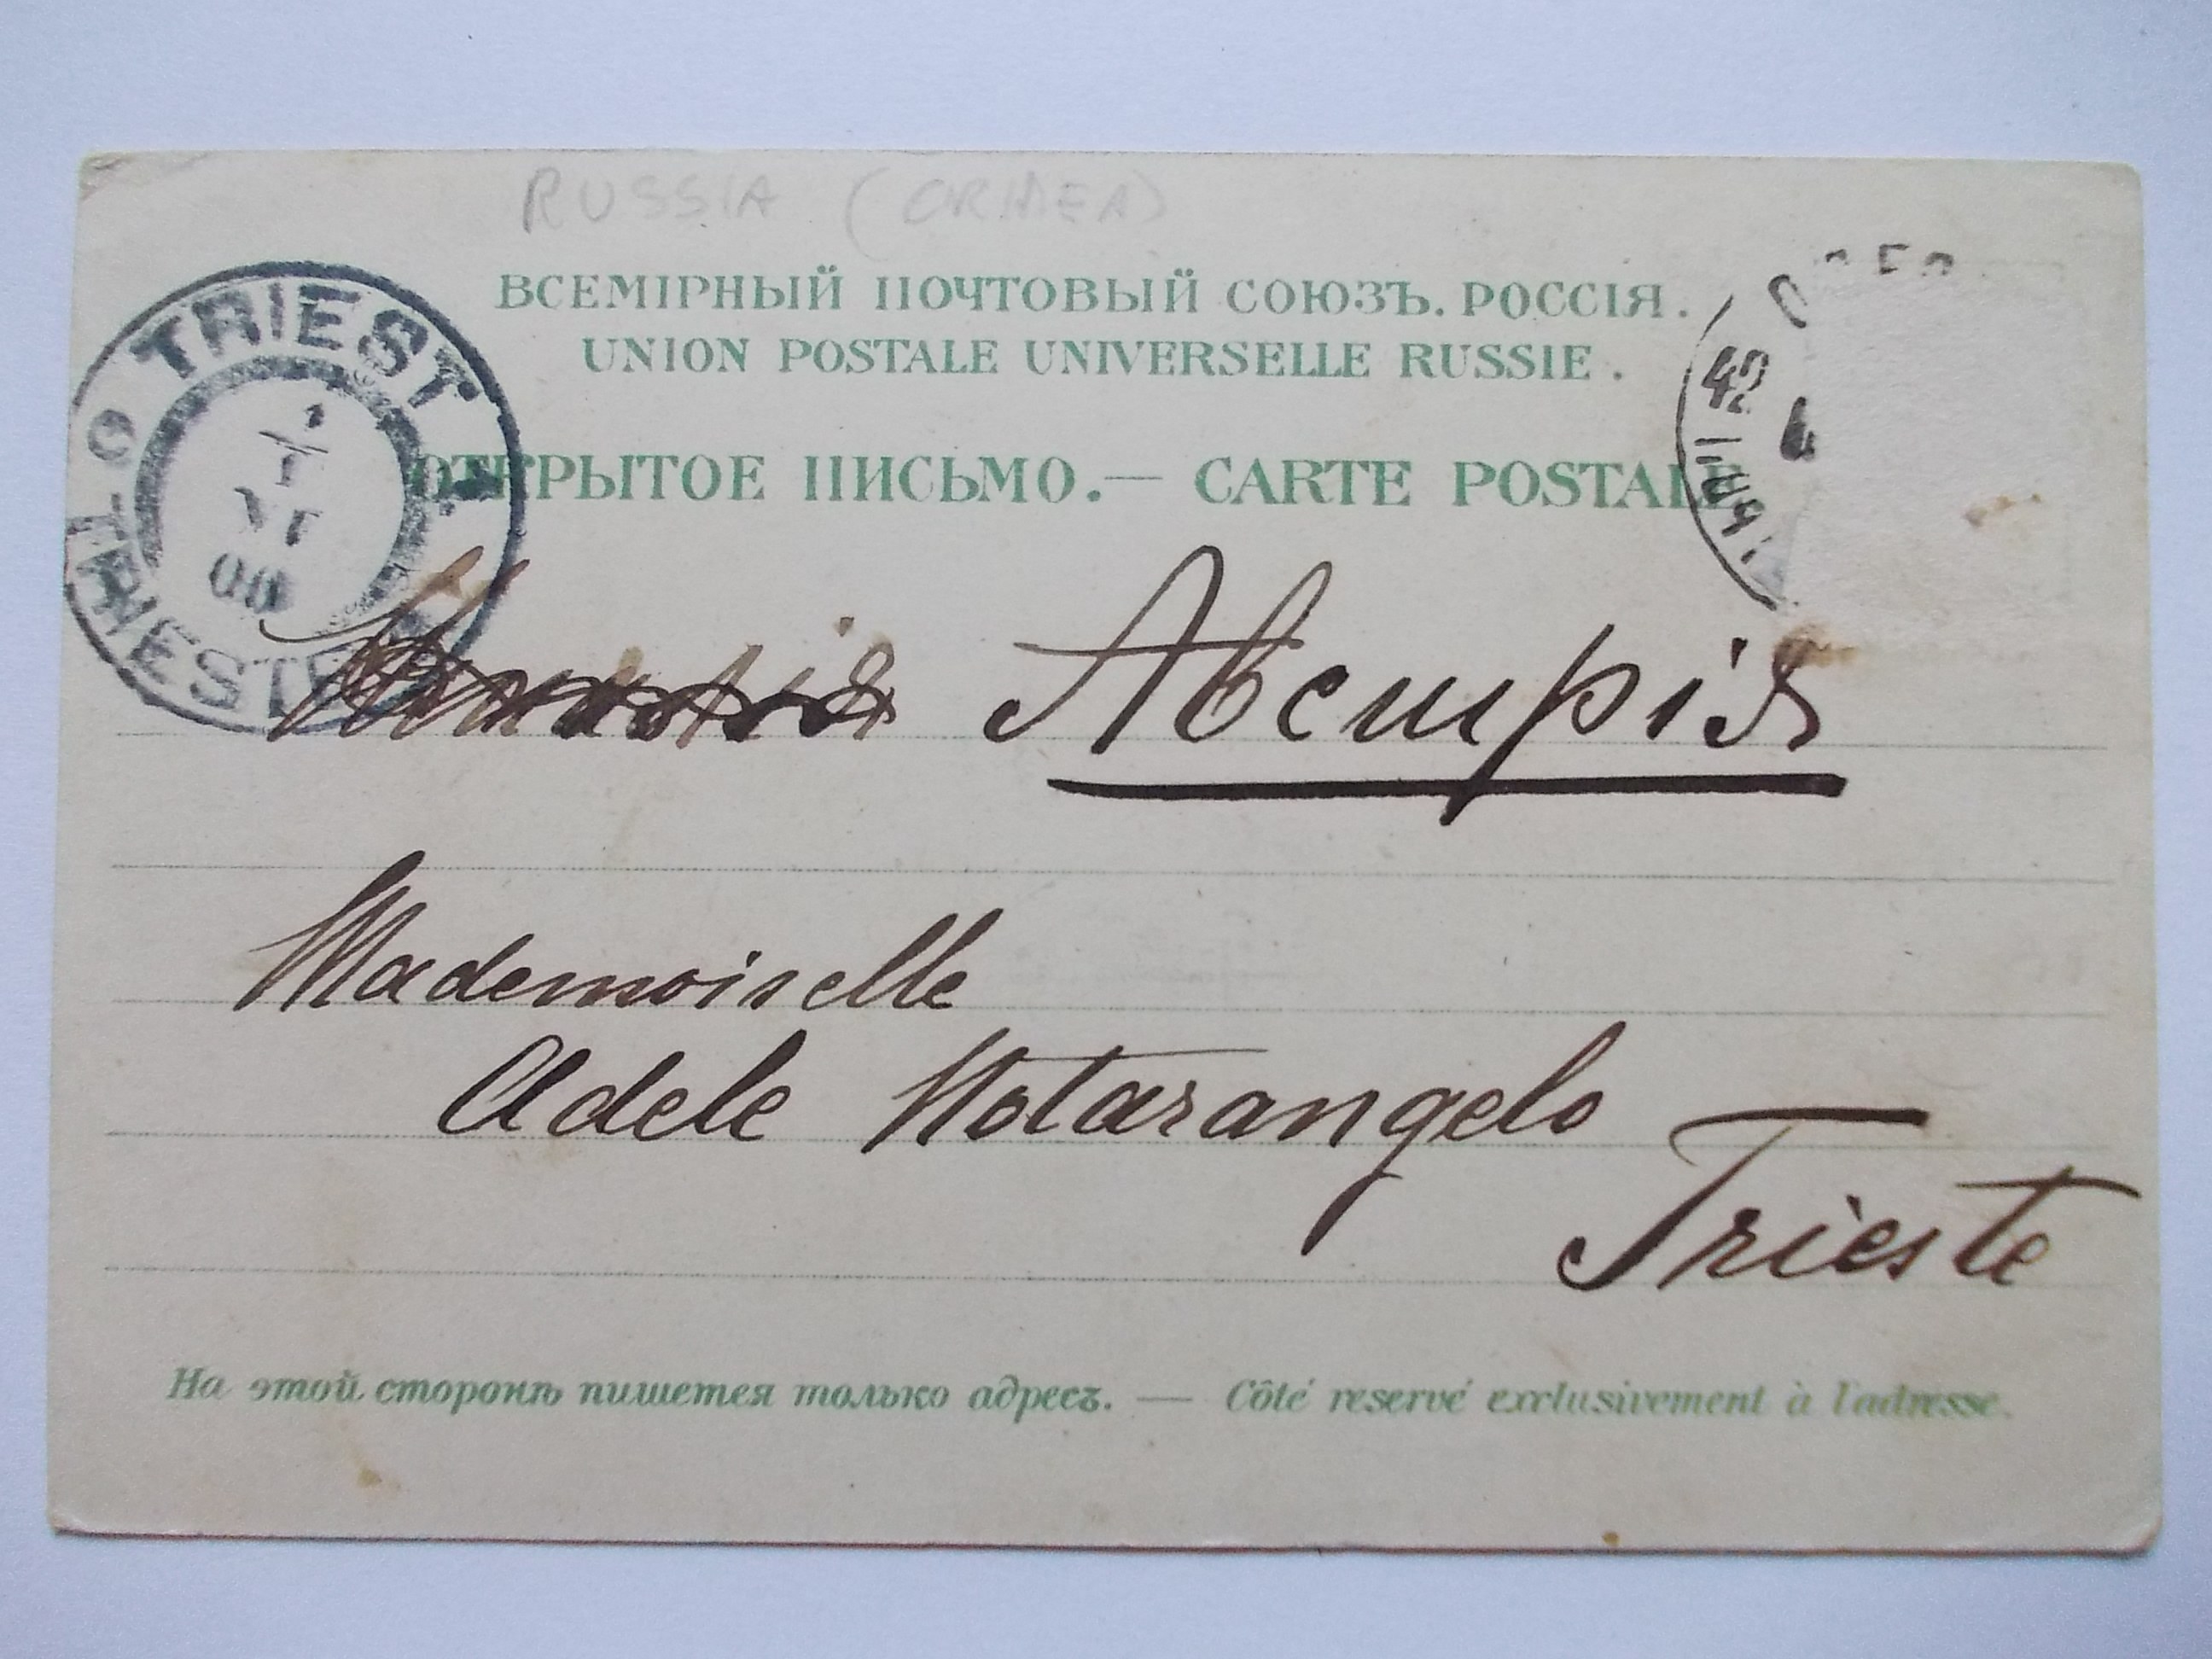 RUSSIA (CRIMEA)
ВСЕМІРНЫЙ ПОЧТОВЫЙ СОЮЗЪ. РОССІЯ.
UNION POSTALE UNIVERSELLE RUSSIE.
ОТКРЫТОЕ ПИСЬМО.— CARTE POSTALE
TRIEST
VI
00
TRIESTE
42
Австрія
Mademoiselle
Adele Notarangelo
Trieste
На этой сторонѣ пишется только адресъ. — Côté reservé exclusivement à l'adresse.